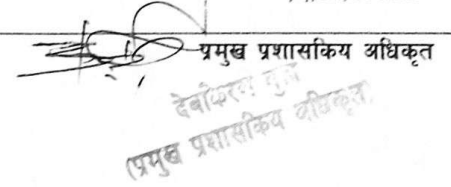 प्रमुख प्रशासकिय अधिकृत
(प्रमुख प्रशासकिय अधिकृत)